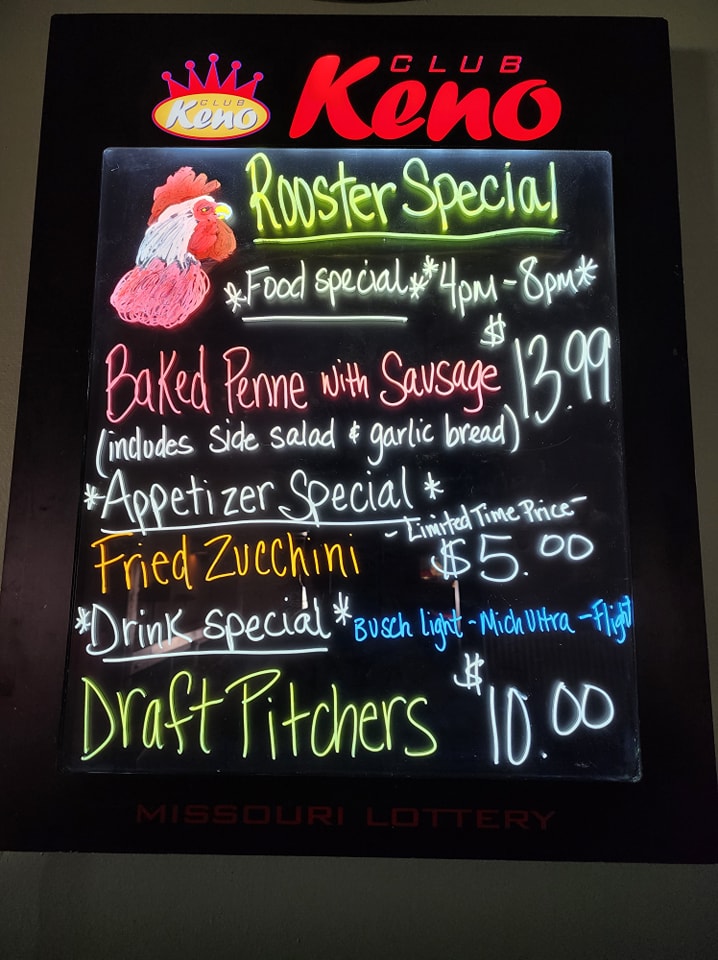 CLUB
Keno
CLUB
Keno
Rooster Special
*Food special* *4pm-8pm*
Baked Penne with Sausage $13.99
(includes side salad & garlic bread)
*Appetizer Special*
-Limited Time Price-
Fried Zucchini $5.00
*Drink special* Busch light - Mich Ultra - Flight
Draft Pitchers $10.00
MISSOURI LOTTERY